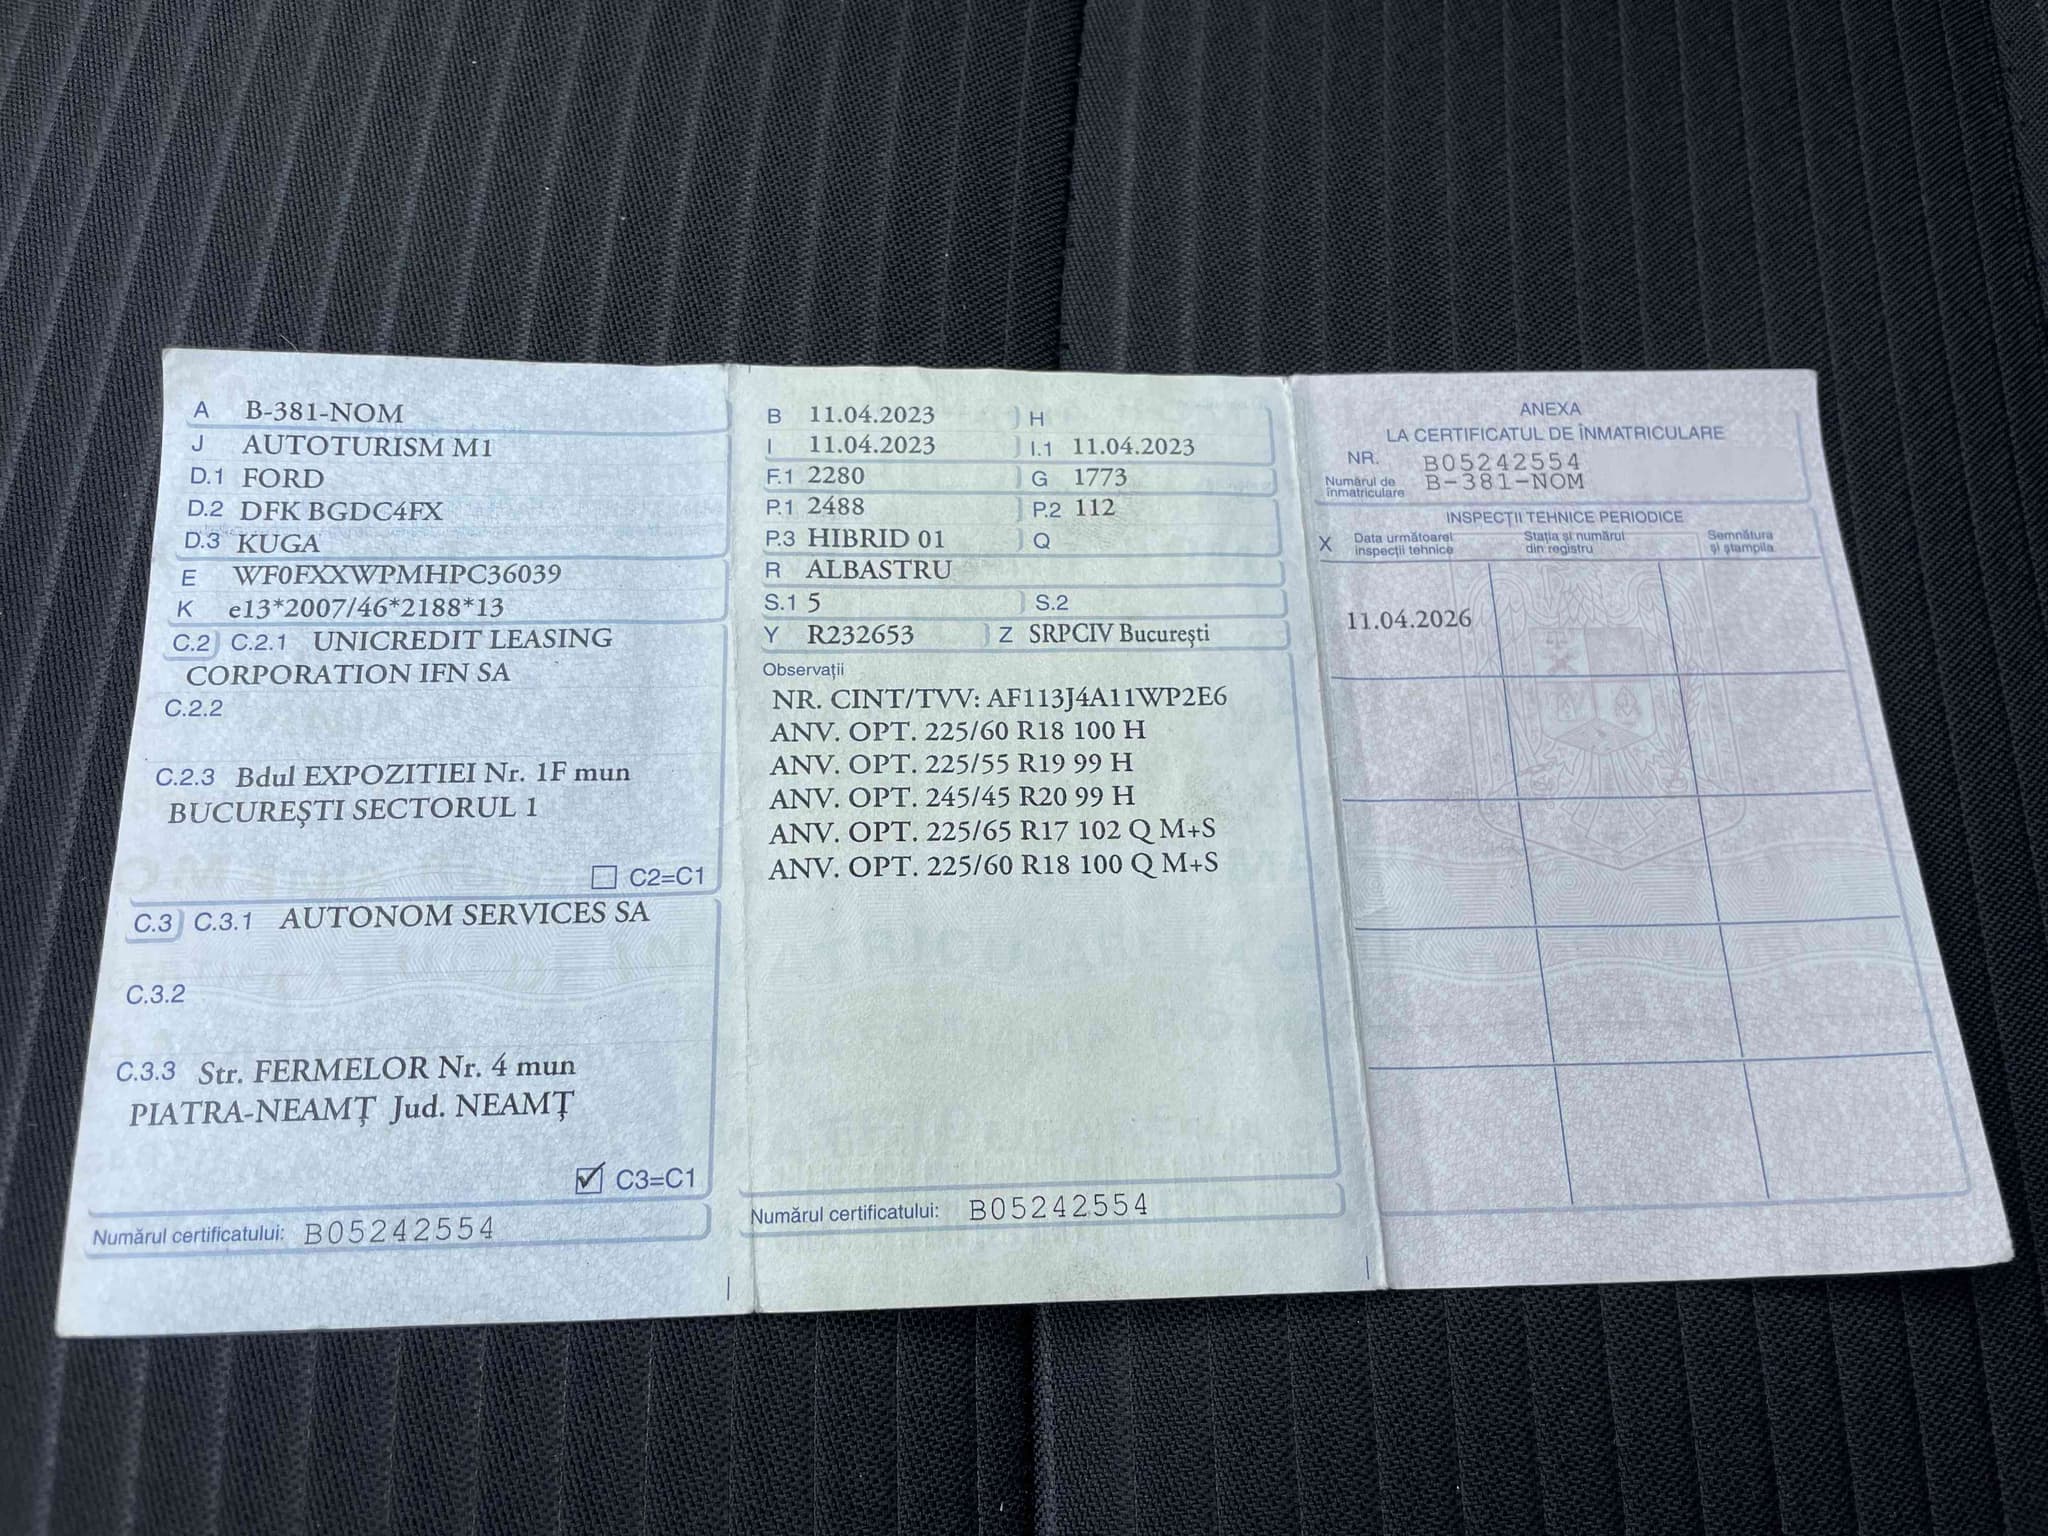 A B-381-NOM
J AUTOTURISM M1
D.1 FORD
D.2 DFK BGDC4FX
D.3 KUGA
E WF0FXXWPMHPC36039
K e13*2007/46*2188*13
C.2 C.2.1 UNICREDIT LEASING
CORPORATION IFN SA
C.2.2
C.2.3 Bdul EXPOZITIEI Nr. 1F mun
BUCUREŞTI SECTORUL 1
C2=C1
C.3 C.3.1 AUTONOM SERVICES SA
C.3.2
C.3.3 Str. FERMELOR Nr. 4 mun
PIATRA-NEAMŢ Jud. NEAMŢ
C3=C1
Numărul certificatului: B05242554
B 11.04.2023 H
I 11.04.2023 I.1 11.04.2023
F.1 2280 G 1773
P.1 2488 P.2 112
P.3 HIBRID 01 Q
R ALBASTRU
S.1 5 S.2
Y R232653 Z SRPCIV Bucureşti
Observaţii
NR. CINT/TVV: AF113J4A11WP2E6
ANV. OPT. 225/60 R18 100 H
ANV. OPT. 225/55 R19 99 H
ANV. OPT. 245/45 R20 99 H
ANV. OPT. 225/65 R17 102 Q M+S
ANV. OPT. 225/60 R18 100 Q M+S
Numărul certificatului: B05242554
ANEXA
LA CERTIFICATUL DE ÎNMATRICULARE
NR. B05242554
Numărul de
înmatriculare B-381-NOM
INSPECŢII TEHNICE PERIODICE
X Data următoarei Staţia şi numărul Semnătura
inspecţii tehnice din registru şi ştampila
11.04.2026